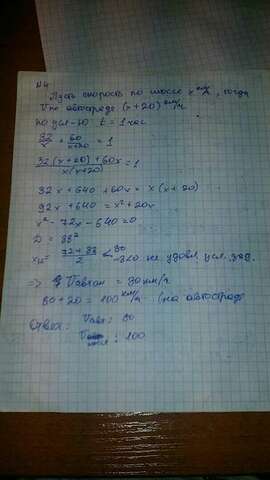 N4
Пусть скорость по шоссе x км/ч, тогда
V по автостраде (x+20) км/ч
по усл-ю t = 1 час
32/x + 60/x+20 = 1
32(x+20)+60x / x(x+20) = 1
32x+640+60x = x(x+20)
92x+640 = x²+20x
x²-72x-640=0
D = 88²
x = 72±88 / 2 < 80
-8 не удовл. усл. зад.
=> V = 80 км/ч
80+20 = 100 км/ч (на автостраде
Ответ: V : 80
V : 100